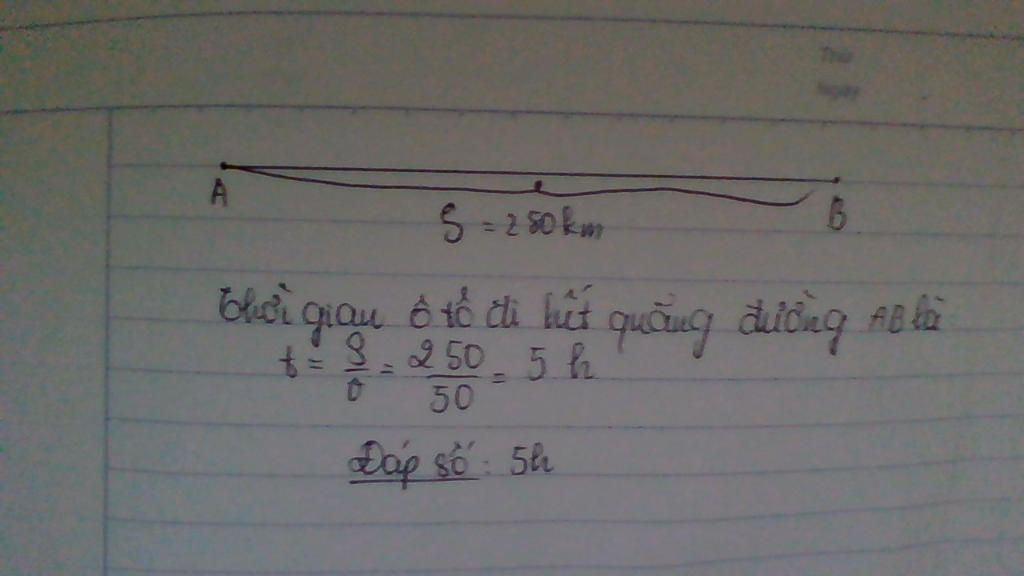 Thứ
Ngày
A
B
S = 250km
Thời gian ô tô đi hết quãng đường AB là
t = S/v = 250/50 = 5 h
Đáp số: 5h